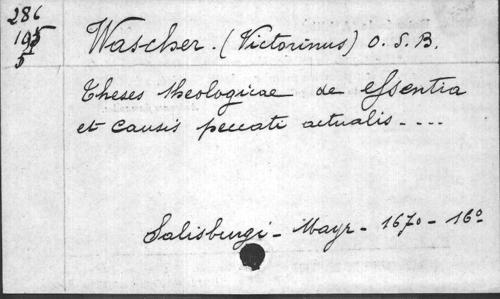 286
195
5
Wascher. (Victorinus) O. S. B.
Theses theologicae de essentia
et causis peccati actualis - ...
Salisburgi - Mayr - 1670 - 16º